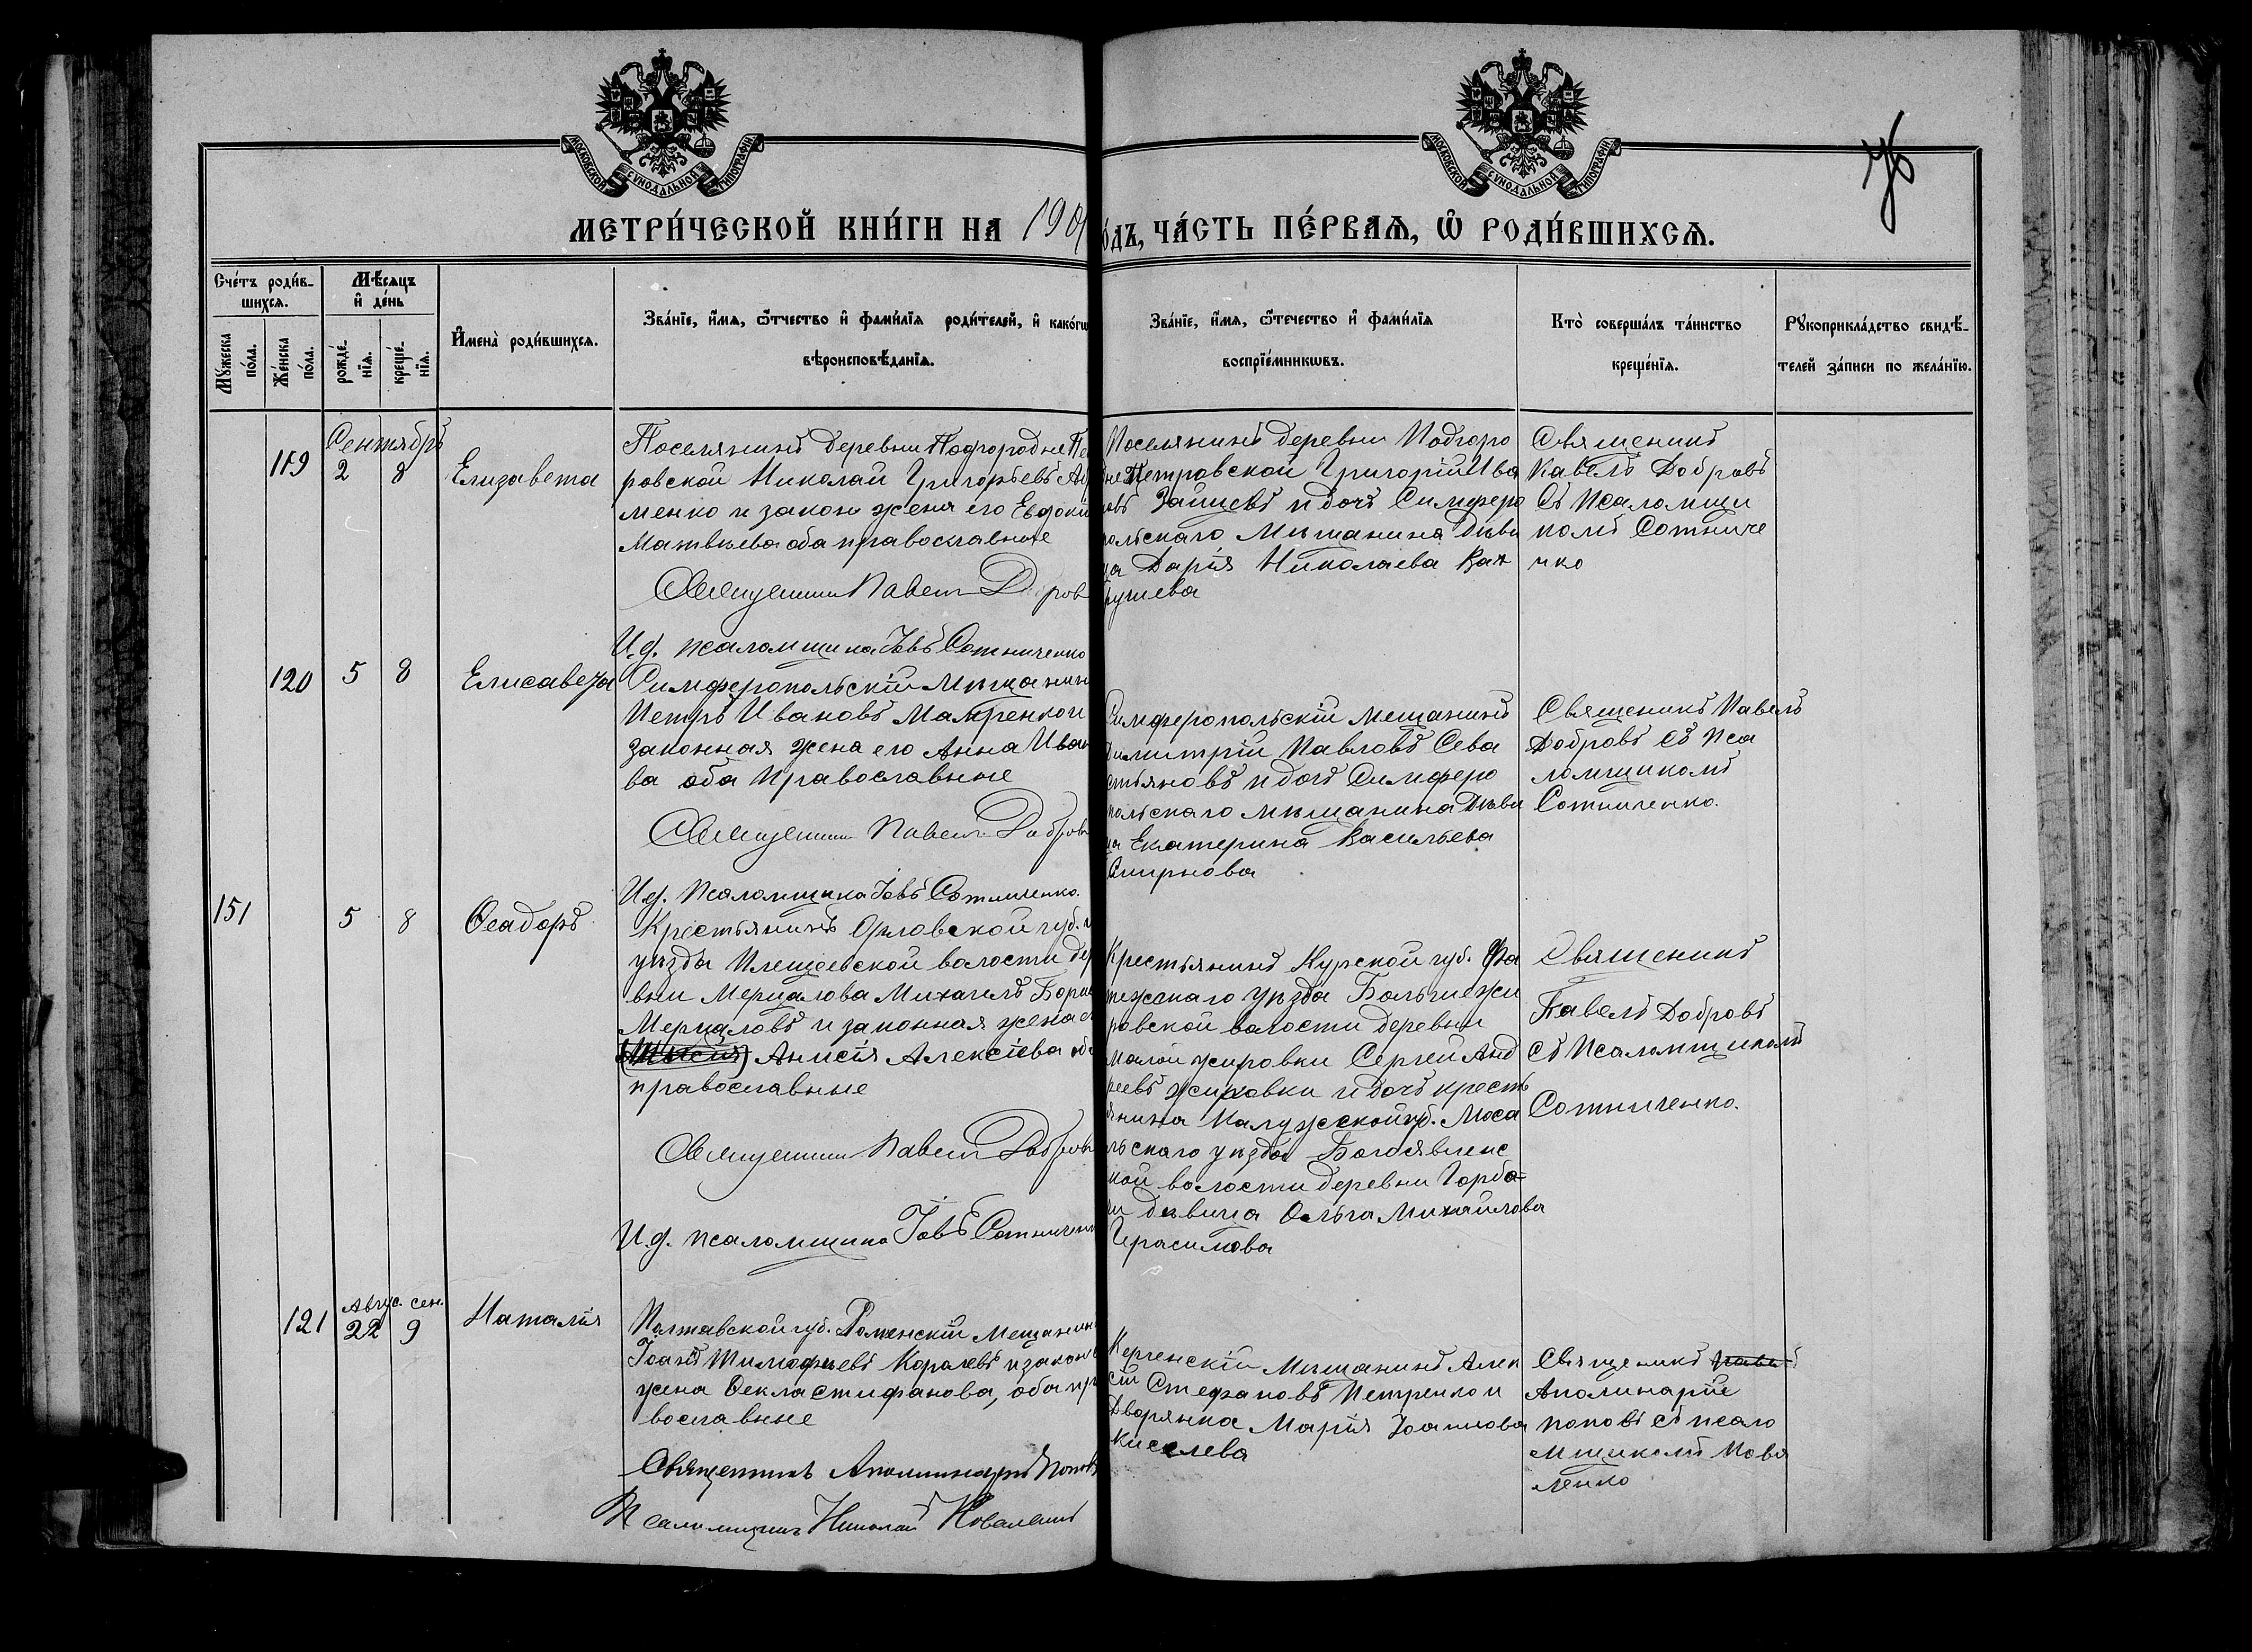 МОСКОВСКОЙ СУНОДАЛЬНОЙ ТИПОГРАФІИ
МОСКОВСКОЙ СУНОДАЛЬНОЙ ТИПОГРАФІИ
МЕТРИ́ЧЕСКОЙ КНИ́ГИ НА 190
ДЪ, ЧА́СТЬ ПЕ́РВАѦ, Ѡ РОДИ́ВШИХСѦ.
Сче́тъ роди́в-
шихсѧ.
Мꙋжеска
по́ла.
Же́нска
по́ла.
Мѣ́сѧцъ
и҆ де́нь
рожде́-
нїѧ.
креще́-
нїѧ.
И҆мена̀ роди́вшихсѧ.
Зва́нїе, и҆́мѧ, ѻ҆́тчество и҆ фами́лїѧ роди́телей, и҆ како́гѡ
вѣроисповѣ́данїѧ.
Зва́нїе, и҆́мѧ, ѻ҆́течество и҆ фами́лїѧ
воспрїе́мникѡвъ.
Кто̀ соверша́лъ та́инство
креще́нїѧ.
Рꙋкоприкла́дство свидѣ́-
телей за́писи по жела́нїю.
119
Сентябрь
2 8
Елизавета
Поселянинъ деревни Подгородне Пе
ровской Николай Григорьевъ
менко и закон жена его Евдокі
Матвѣева оба православные
Священникъ Павелъ Д бров
И.д. псаломщика Іовъ Сотниченко
Поселянинъ деревни Подгоро
не Петровской Григорій Ива
овъ Зайцевъ и дочь Симферо
ольскаго Мѣщанина Дѣви
ца Дарія Николаева Вах
рушева
Священикъ
Павелъ Добровъ
Съ Псаломщи
комъ Сотниче
нко
120
5 8
Елисавета
Симферопольскій Мѣщанин
Петръ Ивановъ Мамренко и
законная жена его Анна Иван
ва оба Православные
Священникъ Павелъ Добров
И.д. Псаломщика Іовъ Сотниченко.
Симферопольскій мещанинъ
Димитрій Павловъ Сева
стьяновъ и дочь Симферо
польскаго мѣщанина Дѣви
ца Екатерина Васильева
Смирнова
Священикъ Павелъ
Добровъ съ Пса
ломщикомъ
Сотниченко.
151
5 8
Ѳеадоръ
Крестьянинъ Орловской губ.
уѣзда Плещеевской волости дер
вни Мерцалова Михаилъ Бори
Мерцаловъ и законная жена е
Анисія Алексіева об
православные
Священникъ Павелъ Добров
И.д. псаломщика Іовъ Сотничен
Крестьянинъ Курской губ. Фа
тежскаго уѣзда Большежи
ровской волости деревни
малой жировки Сергій Анд
реевъ жировки и дочь кресть
янина Калужской губ. Моса
льскаго уѣзда Богоявленс
кой волости деревни Горба-
чи дѣвица Ольга Михайлова
Герасимова
Священикъ
Павелъ Добровъ
съ Псаломщикомъ
Сотниченко.
121
Авгус. сен.
22 9
Наталія
Полтавской губ. Роменскій Мещанин
Іоанъ Тимофѣевъ Королевъ и закон
жена Ѳекла Стифанова, оба пр
вославные
Священникъ Аполинарій Попов
Псаломщикъ Николай Коваленко
Керченскій Мѣщанинъ Алек
сій Стефановъ Петренко и
Дворянка Марія Іоаннова
Киселева
Священикъ
Аполинарій
Поповъ съ псало
мщикомъ Кова
ленко